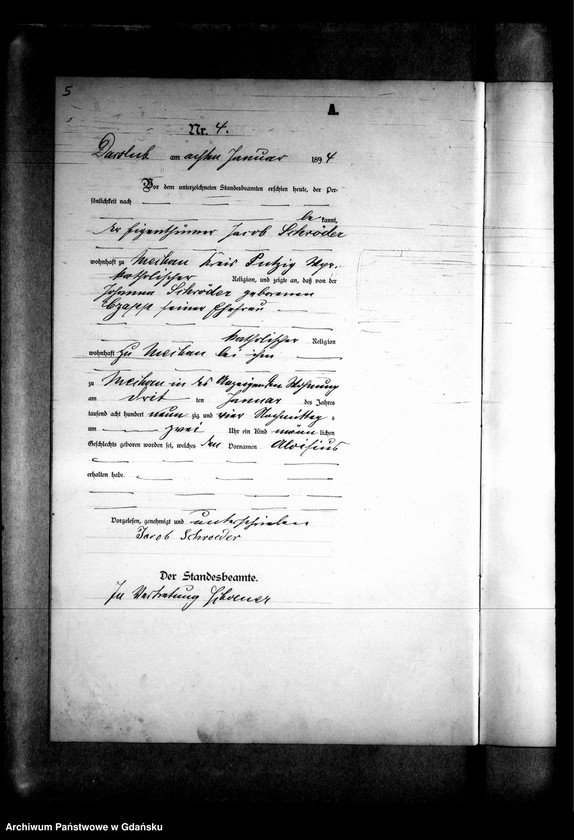 5
A.
Nr. 4.
Darslub am achten Januar 1894
Vor dem unterzeichneten Standesbeamten erschien heute, der Per-
sönlichkeit nach
be kannt,
der Eigenthümer Jacob Schröder
wohnhaft zu Mechau Kreis Putzig Wpr.
katholischer Religion, und zeigte an, daß von der
Johanna Schröder geborenen
Czapp seiner Ehefrau
katholischer Religion
wohnhaft zu Mechau bei ihm
zu Mechau in des Anzeigenden Wohnung
am dritten Januar des Jahres
tausend acht hundert neunzig und vier Nachmittag s
um zwei Uhr ein Kind männlichen
Geschlechts geboren worden sei, welches den Vornamen Aloisius
erhalten habe.
Vorgelesen, genehmigt und unterschrieben
Jacob Schroeder
Der Standesbeamte.
In Vertretung
Archiwum Państwowe w Gdańsku